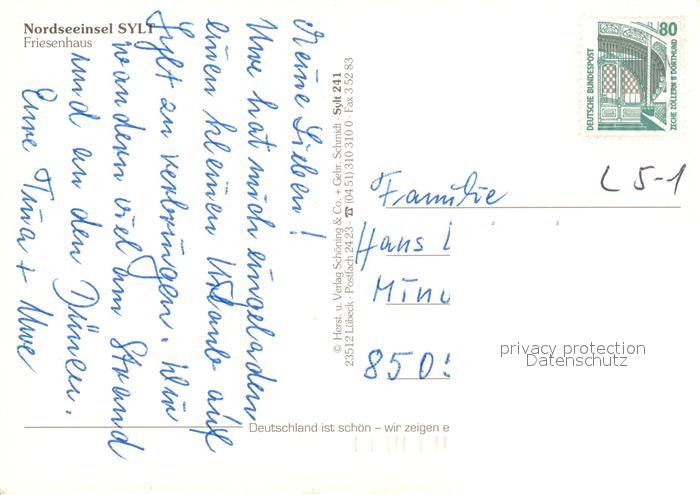 Nordseeinsel SYLT
Friesenhaus
Meine Lieben!
Uwe hat mich eingeladen
einen kleinen Urlaub auf
Sylt zu verbringen. Wir
wandern viel am Strand
und an den Dünen.
Eure Tina + Uwe
© Herst. u. Verlag Schöning & Co. + Gebr. Schmidt · Sylt 241
23512 Lübeck · Postfach 24 23 · ☎ (04 51) 310 310 0 · Fax 3 52 83
80
DEUTSCHE BUNDESPOST
ZECHE ZOLLERN II DORTMUND
L 5-1
Familie
Hans
Minu
8505
privacy protection
Datenschutz
Deutschland ist schön – wir zeigen e